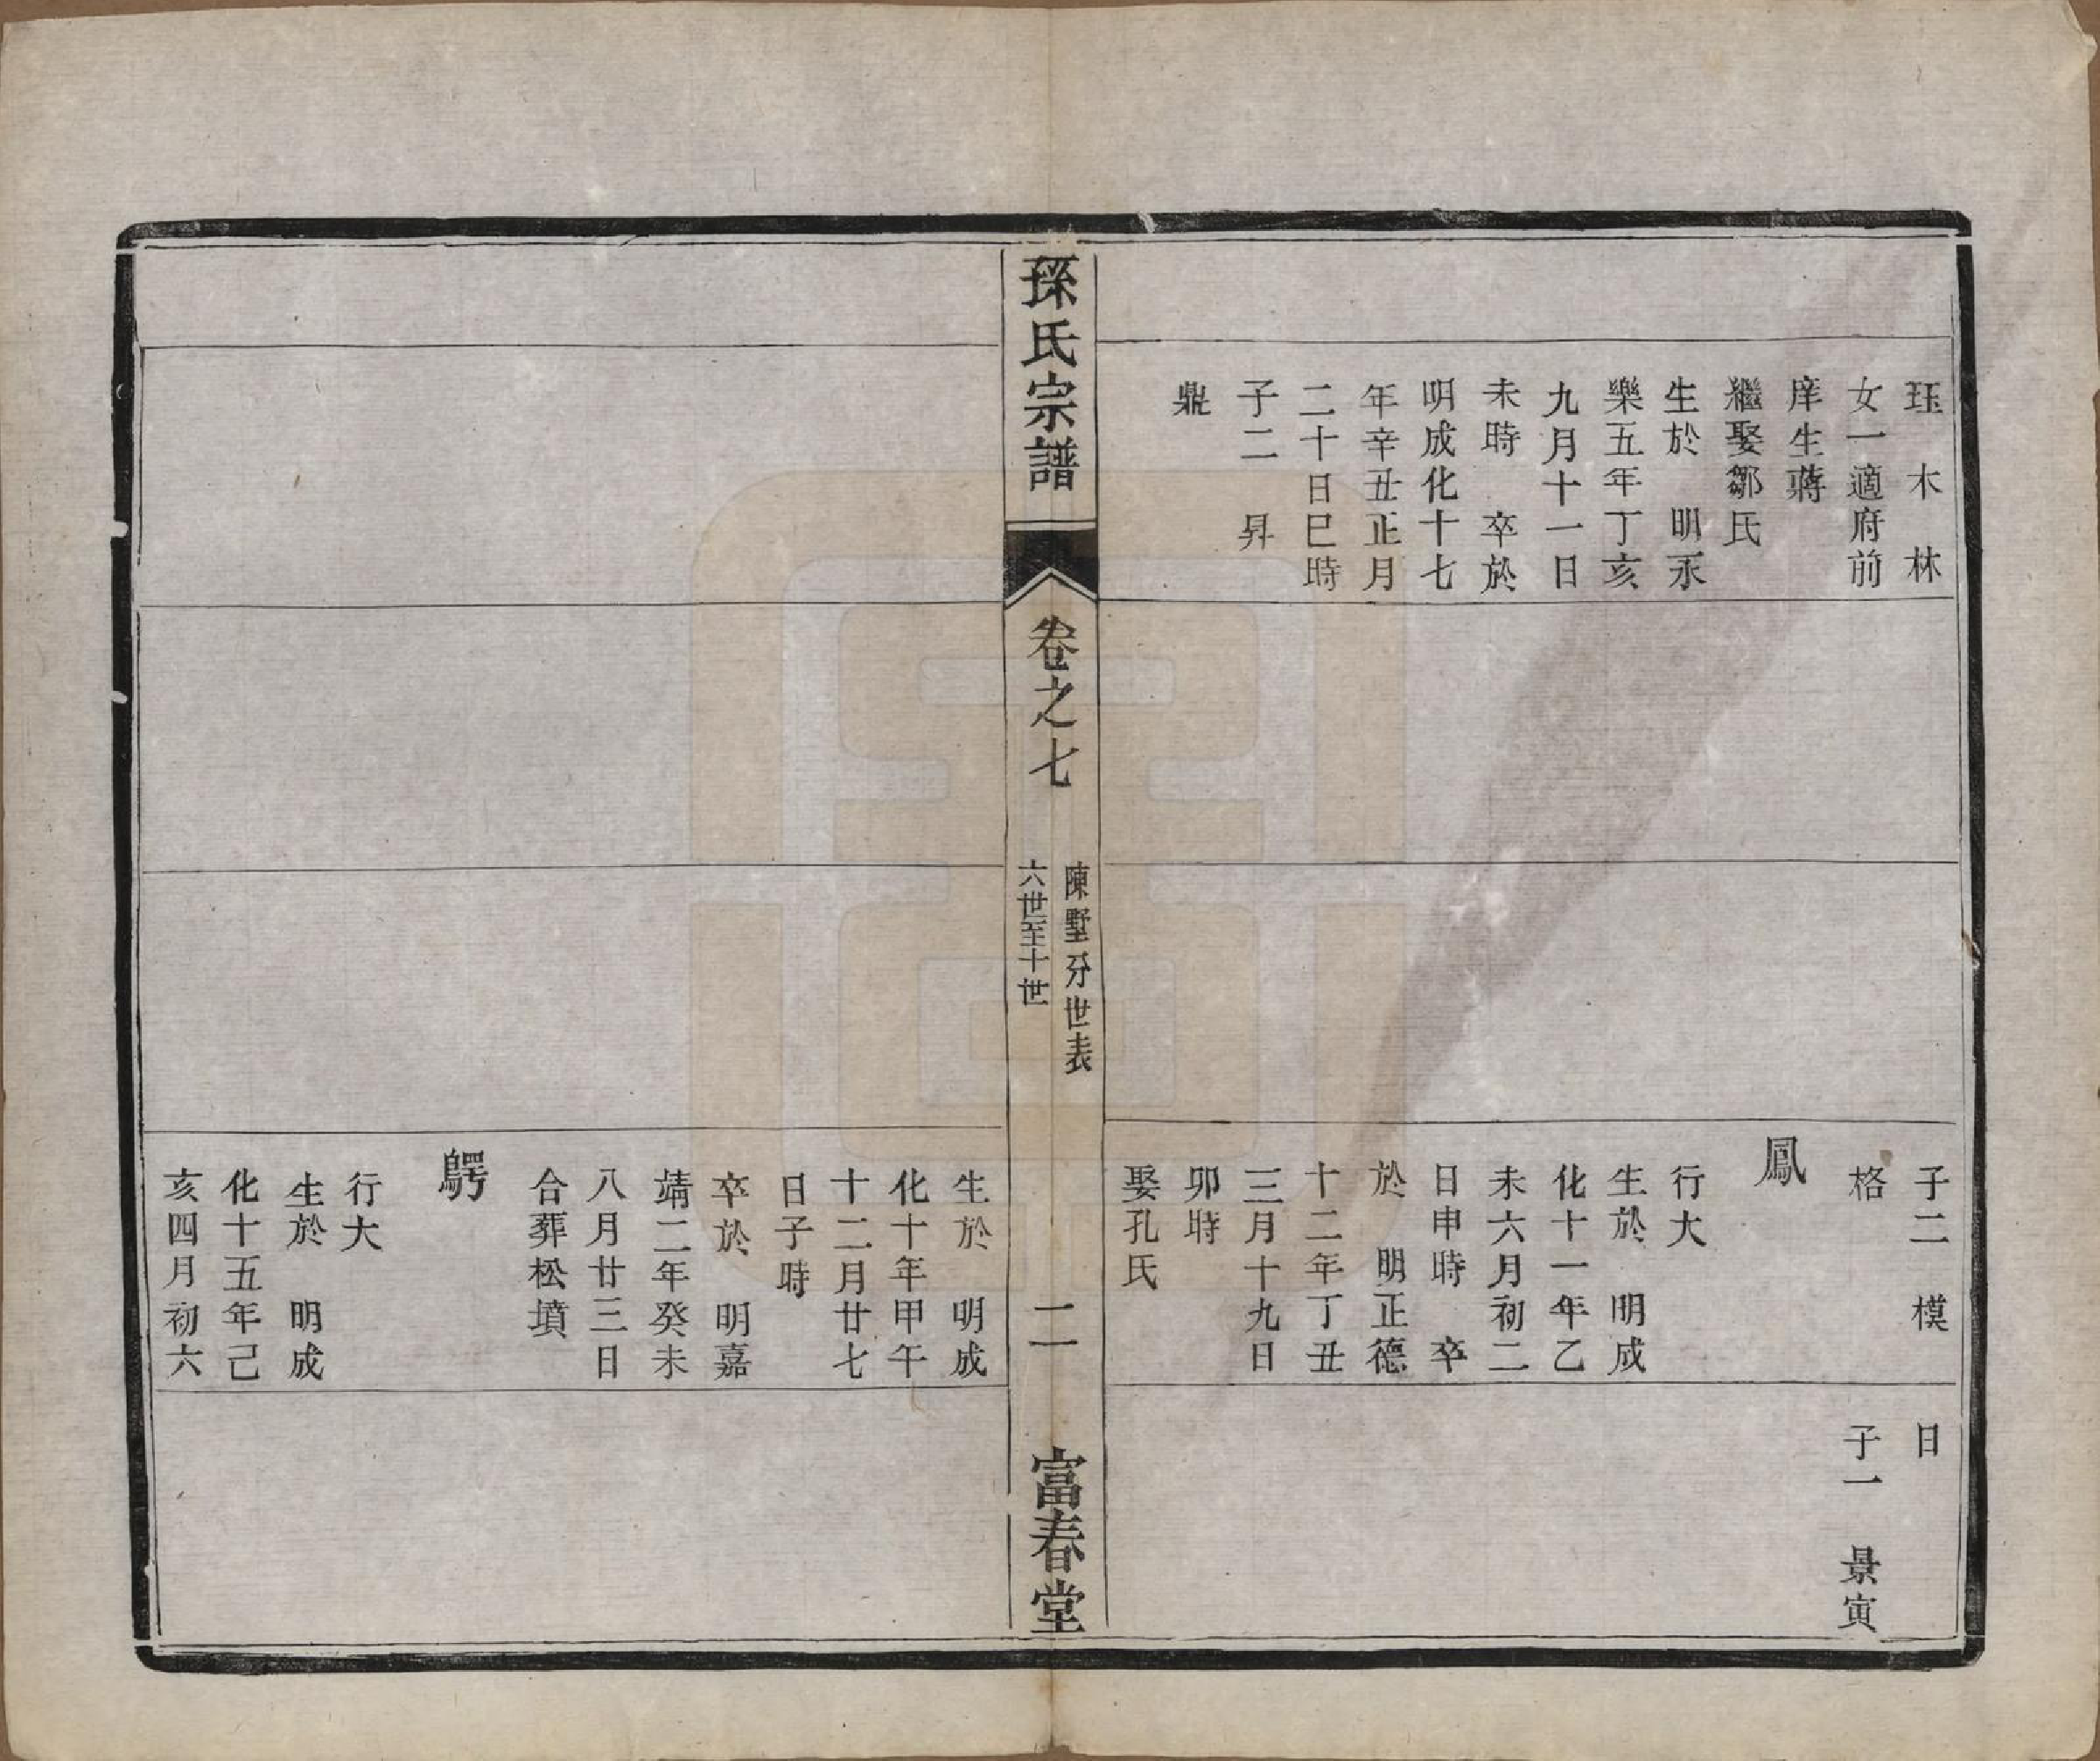 珏　木　林
女一適府前
庠生蔣
繼娶鄒氏
生於　明永
樂五年丁亥
九月十一日
未時　卒於
明成化十七
年辛丑正月
二十日巳時
子二　昇
鼎
子二　模
格
鳳
行大
生於　明成
化十一年乙
未六月初二
日申時　卒
於　明正德
十二年丁丑
三月十九日
卯時
娶孔氏
日
子一　景寅
孫氏宗譜
卷之七
陳墅分世表
六世至十世
二
富春堂
生於　明成
化十年甲午
十二月廿七
日子時
卒於　明嘉
靖二年癸未
八月廿三日
合葬松墳
鶚
行大
生於　明成
化十五年己
亥四月初六